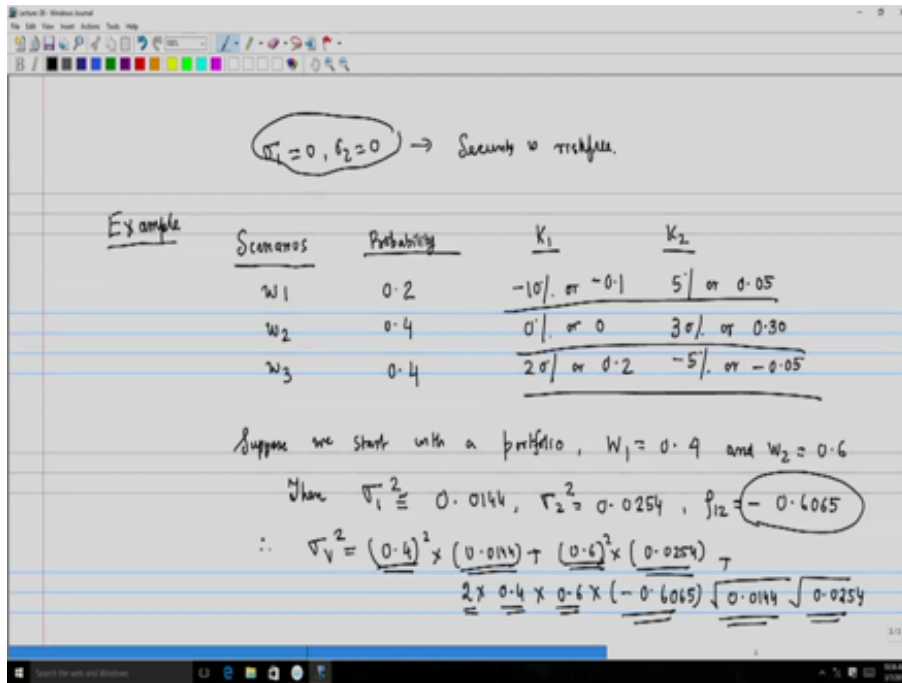 Lecture 30 - Windows Journal
File Edit View Insert Actions Tools Help
σ₁ = 0, σ₂ = 0 → Security is riskfree.
Example
Scenarios Probability K₁ K₂
w1 0.2 -10% or -0.1 5% or 0.05
w₂ 0.4 0% or 0 30% or 0.30
w₃ 0.4 20% or 0.2 -5% or -0.05
Suppose we start with a portfolio, W₁ = 0.4 and w₂ = 0.6
Then σ₁² ≅ 0.0144, σ₂² = 0.0254, ρ₁₂ = - 0.6065
∴ σᵥ² = (0.4)² × (0.0144) + (0.6)² × (0.0254) +
2 × 0.4 × 0.6 × (-0.6065) √0.0144 √0.0254
Search the web and Windows